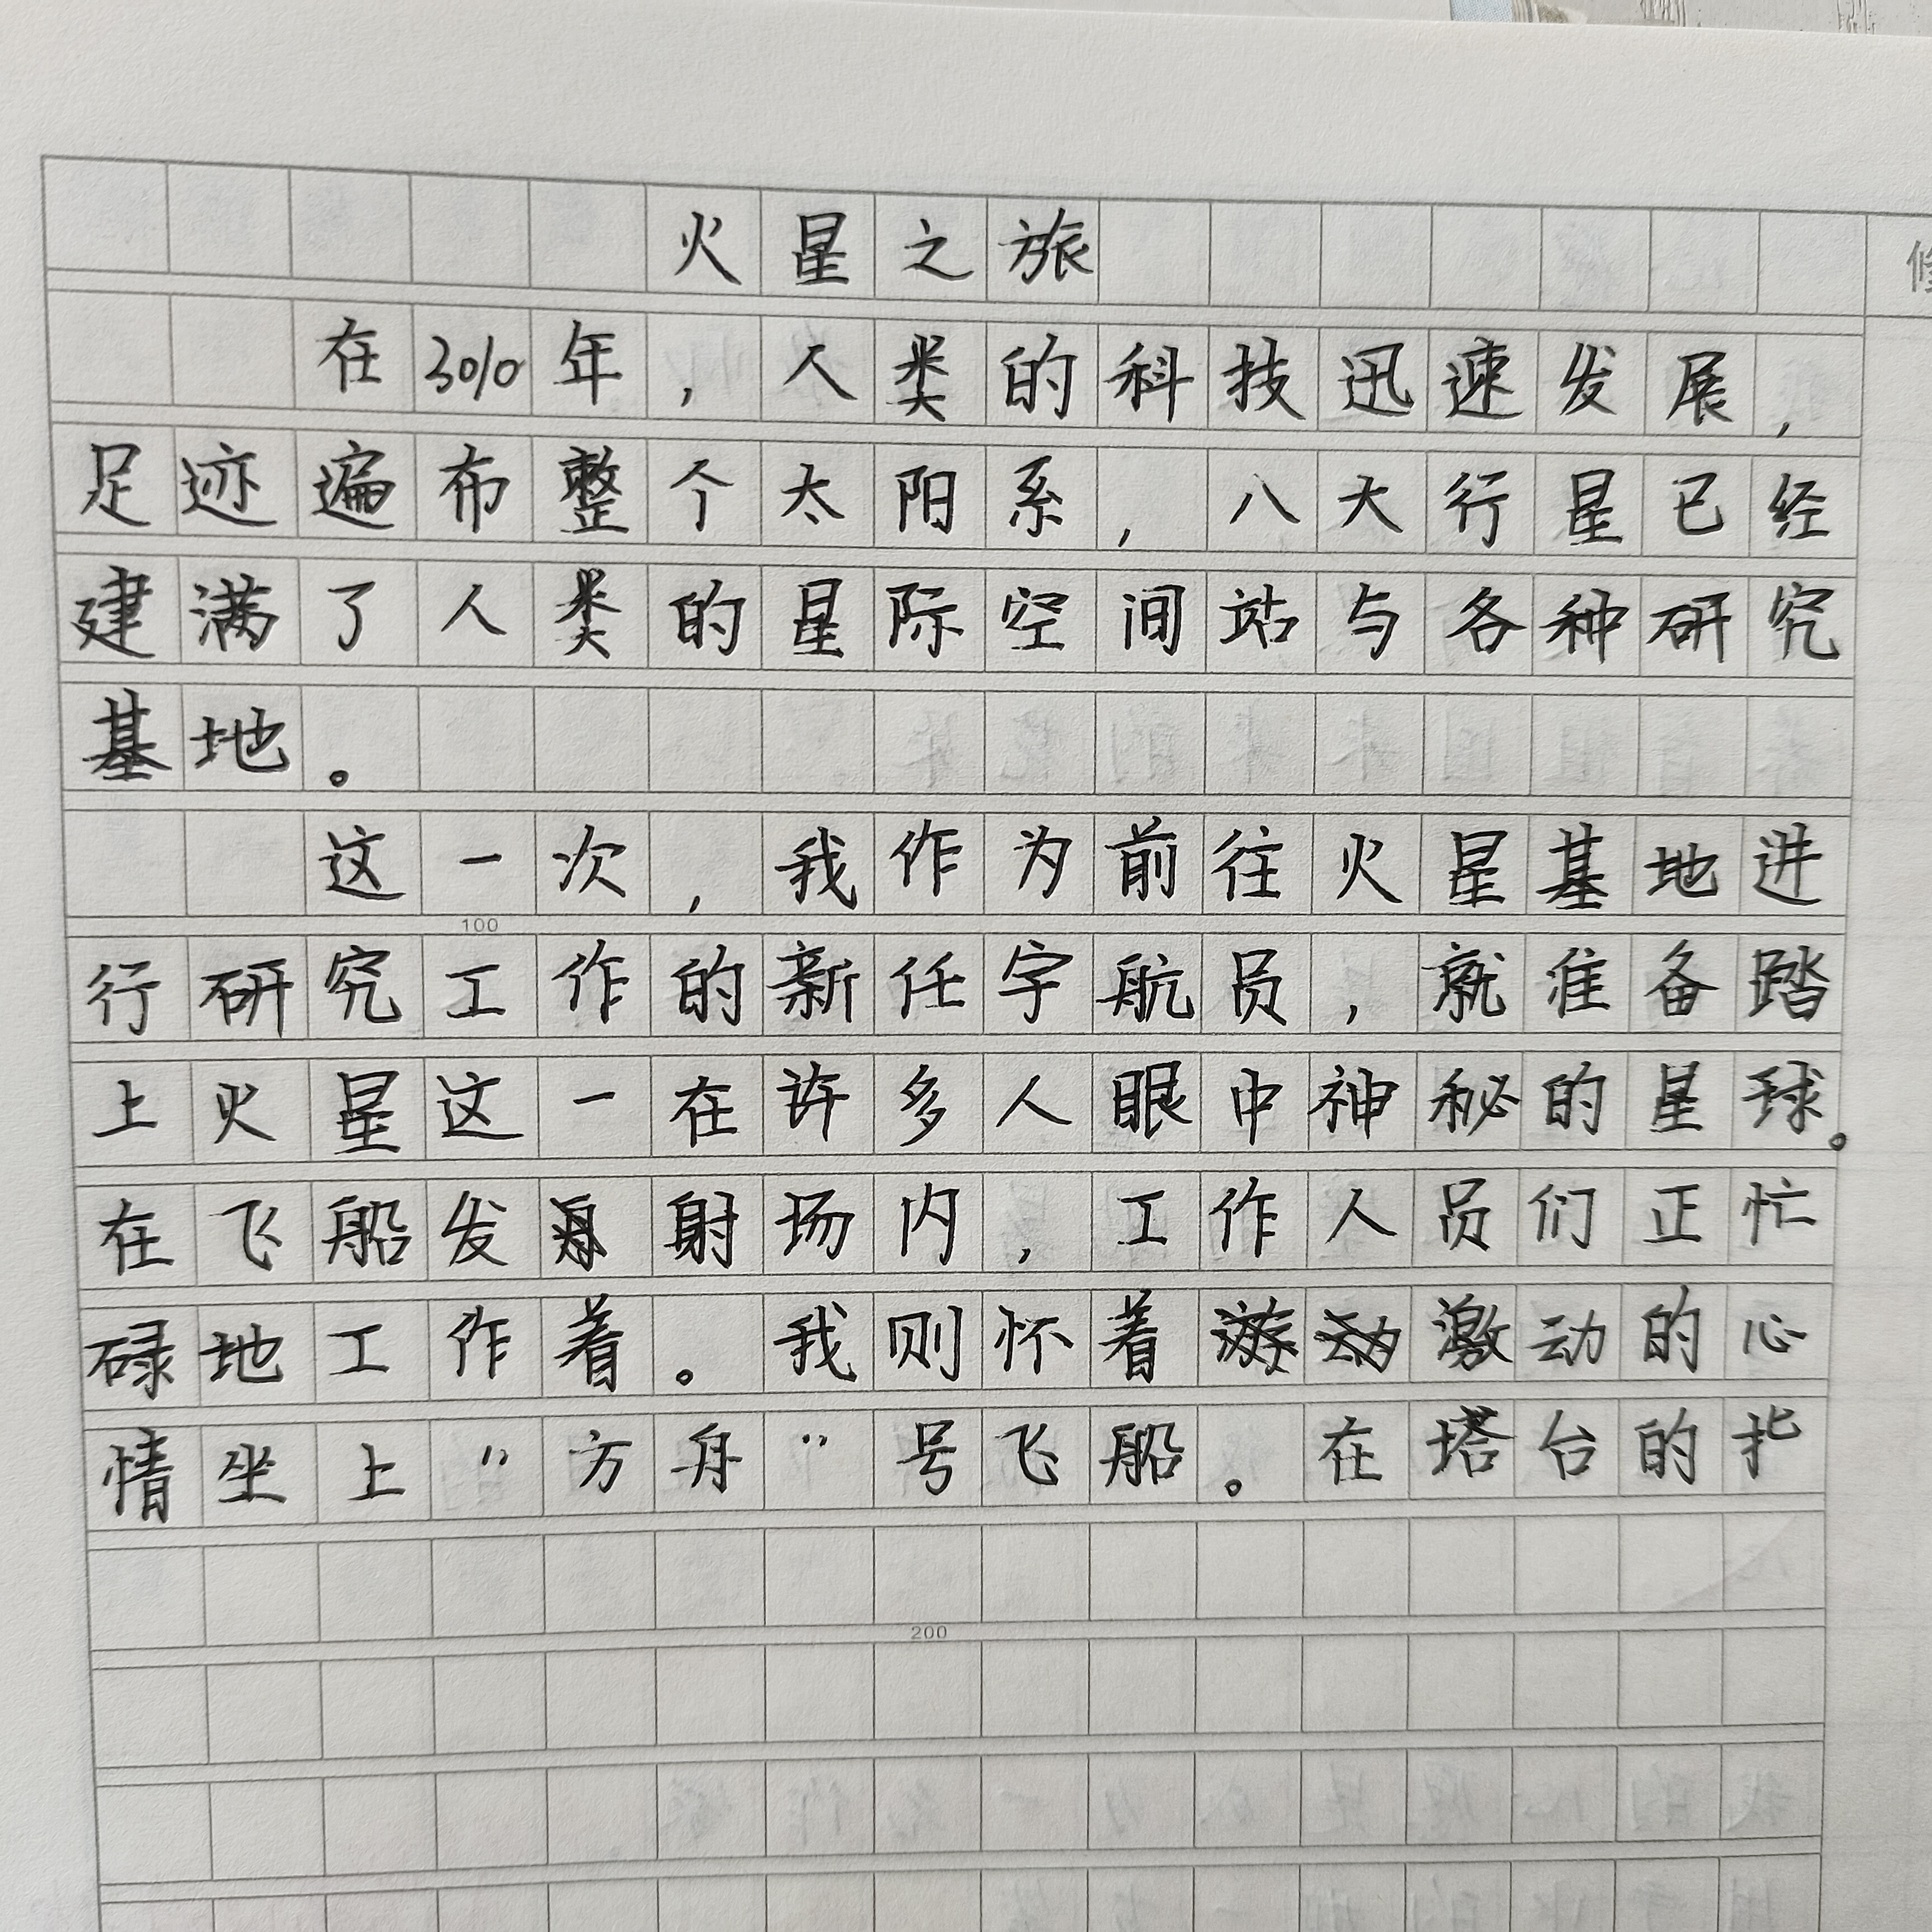 火星之旅
在3010年，人类的科技迅速发展，
足迹遍布整个太阳系，八大行星已经
建满了人类的星际空间站与各种研究
基地。
这一次，我作为前往火星基地进
100
行研究工作的新任宇航员，就准备踏
上火星这一在许多人眼中神秘的星球。
在飞船发射场内，工作人员们正忙
碌地工作着。我则怀着激动的心
情坐上“方舟”号飞船。在塔台的指
200